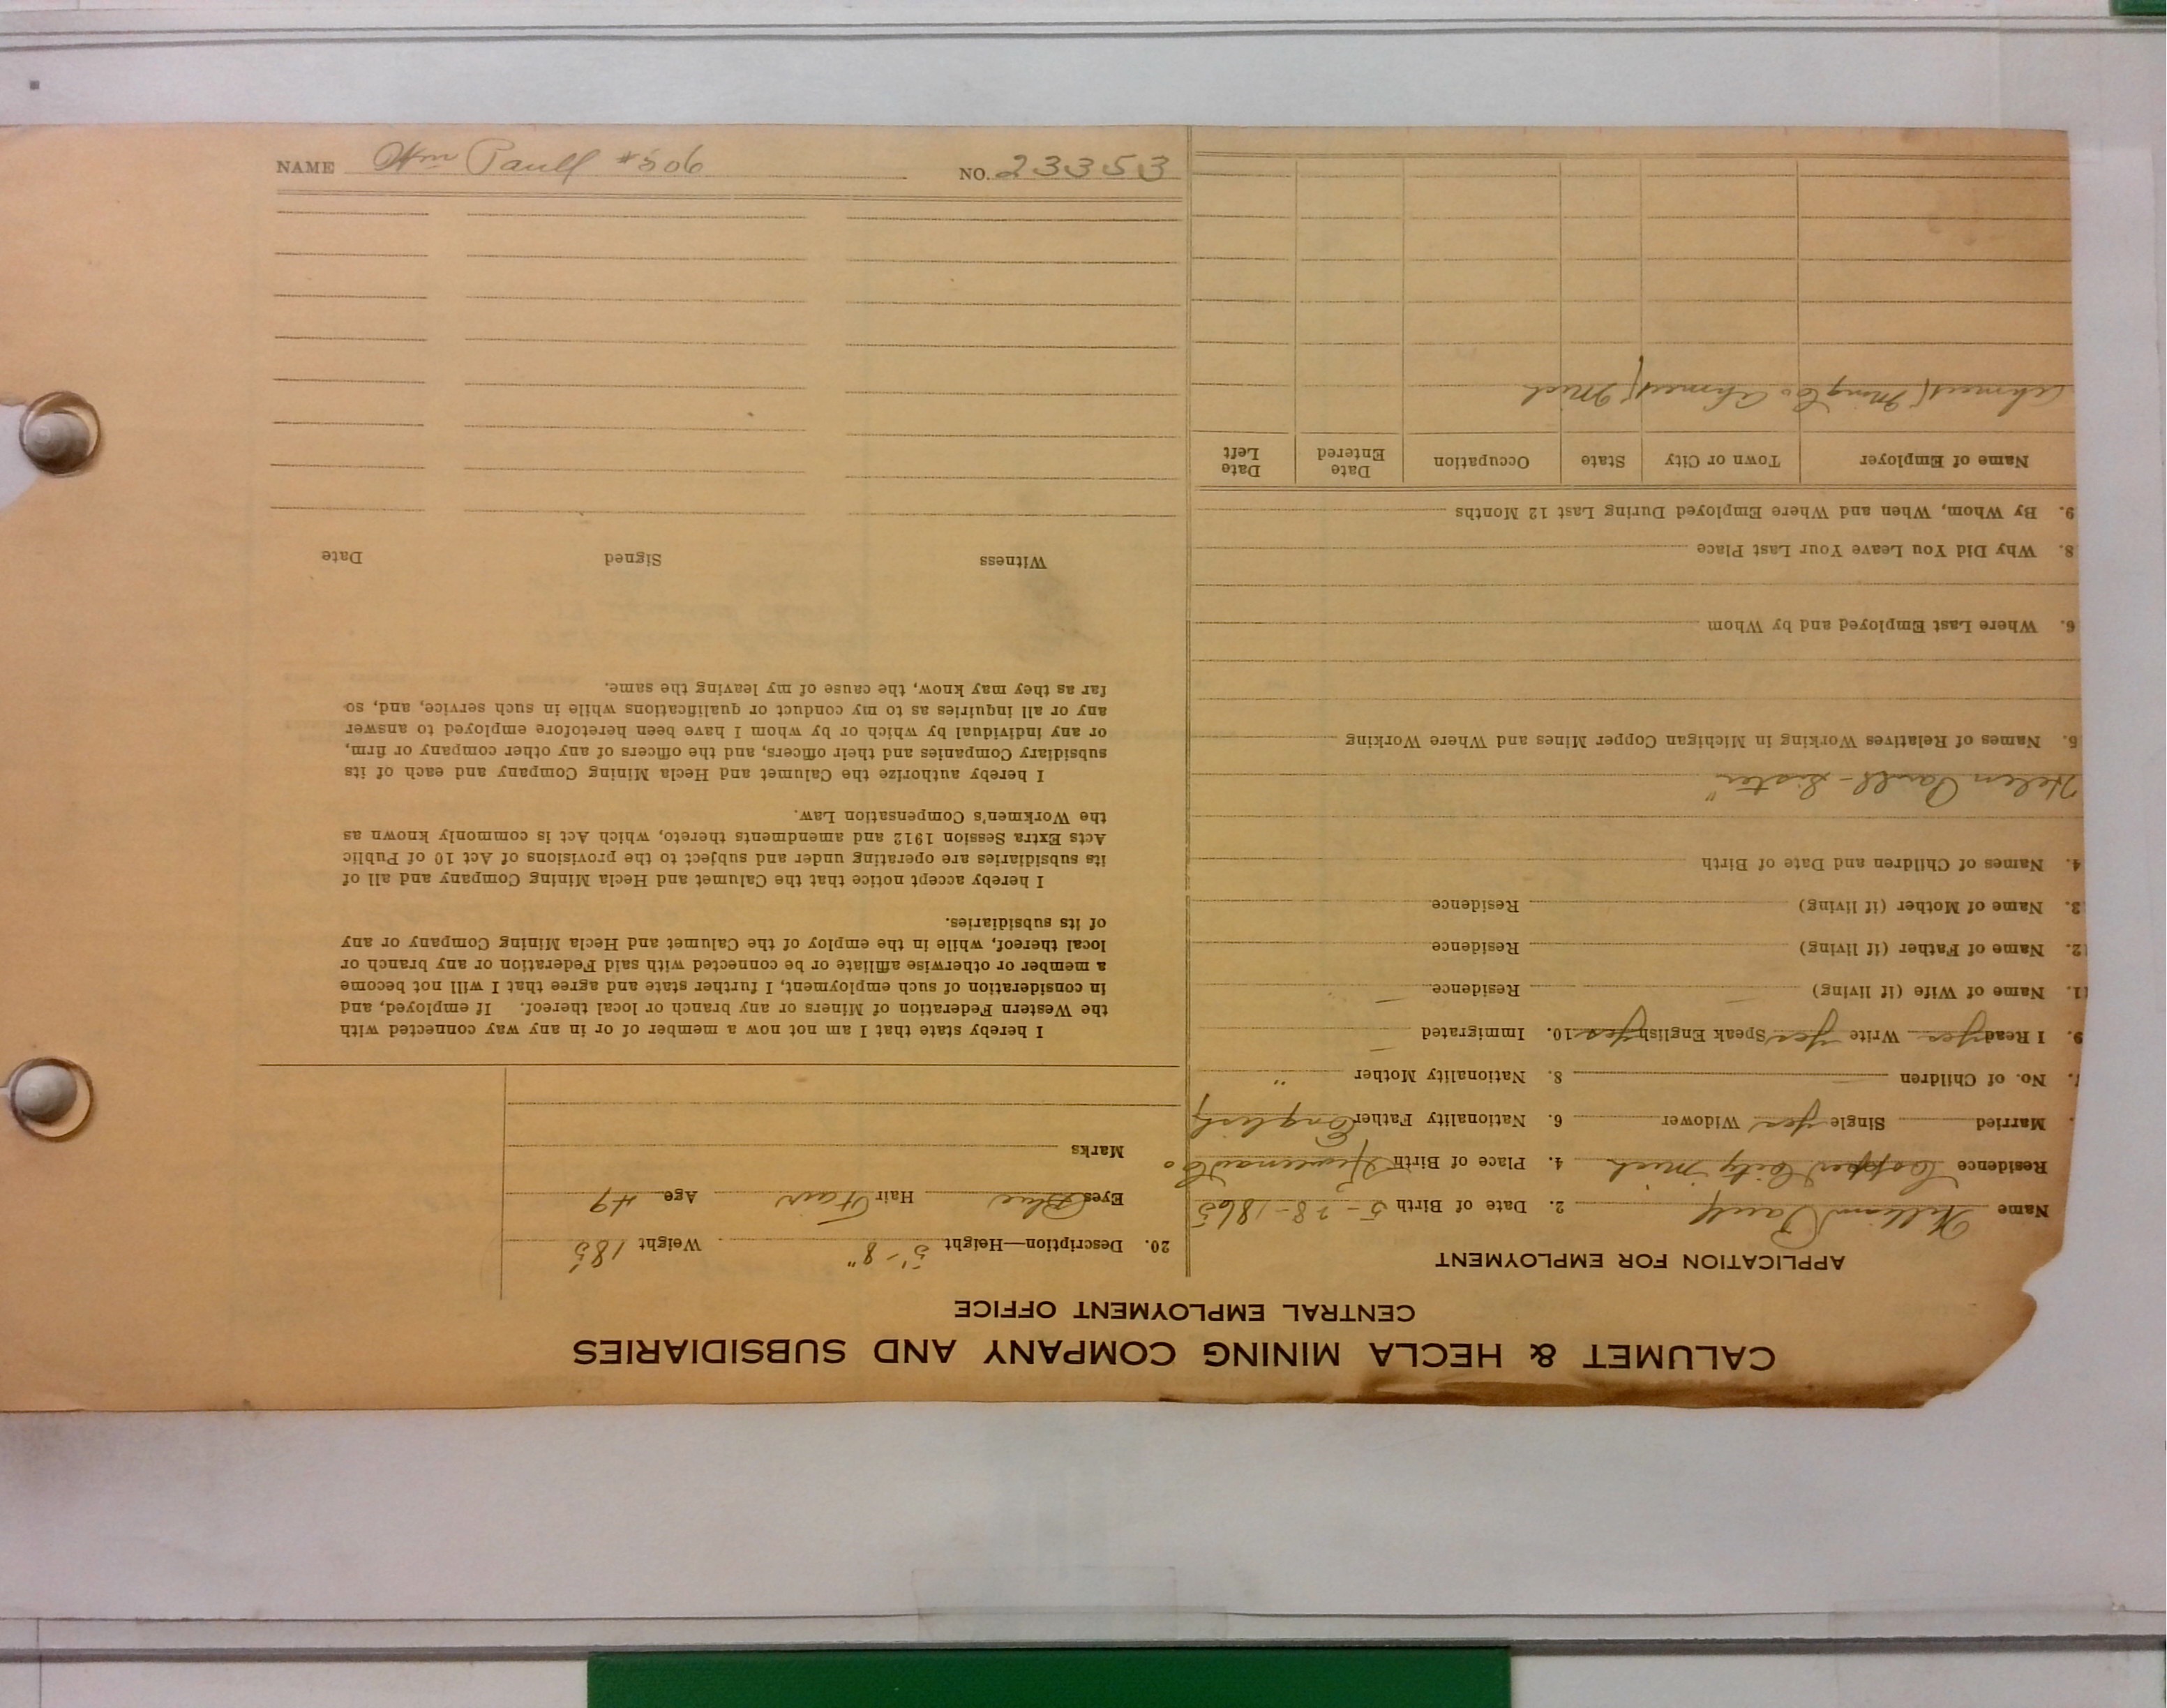 CALUMET & HECLA MINING COMPANY AND SUBSIDIARIES
CENTRAL EMPLOYMENT OFFICE
APPLICATION FOR EMPLOYMENT
Name William Paull 2. Date of Birth 5-28-1865
Residence Copper City Mich 4. Place of Birth Keweenaw Co
Married Single yes Widower 6. Nationality Father English
7. No. of Children 8. Nationality Mother "
9. I Read yes Write yes Speak English yes 10. Immigrated —
11. Name of Wife (if living) — Residence —
12. Name of Father (if living) Residence
13. Name of Mother (if living) Residence
4. Names of Children and Date of Birth
Helen Paull - Sister"
5. Names of Relatives Working in Michigan Copper Mines and Where Working
6. Where Last Employed and by Whom
8. Why Did You Leave Your Last Place
9. By Whom, When and Where Employed During Last 12 Months
Name of Employer Town or City State Occupation Date Entered Date Left
Ahmeek Ming Co. Ahmeek Mich
20. Description—Height 5'-8" Weight 185
Eyes Blue Hair Fair Age 49
Marks
I hereby state that I am not now a member of or in any way connected with
the Western Federation of Miners or any branch or local thereof. If employed, and
in consideration of such employment, I further state and agree that I will not become
a member or otherwise affiliate or be connected with said Federation or any branch or
local thereof, while in the employ of the Calumet and Hecla Mining Company or any
of its subsidiaries.
I hereby accept notice that the Calumet and Hecla Mining Company and all of
its subsidiaries are operating under and subject to the provisions of Act 10 of Public
Acts Extra Session 1912 and amendments thereto, which Act is commonly known as
the Workmen's Compensation Law.
I hereby authorize the Calumet and Hecla Mining Company and each of its
subsidiary Companies and their officers, and the officers of any other company or firm,
or any individual by which or by whom I have been heretofore employed to answer
any or all inquiries as to my conduct or qualifications while in such service, and, so
far as they may know, the cause of my leaving the same.
Witness Signed Date
NAME Wm Paull #506 NO. 23353